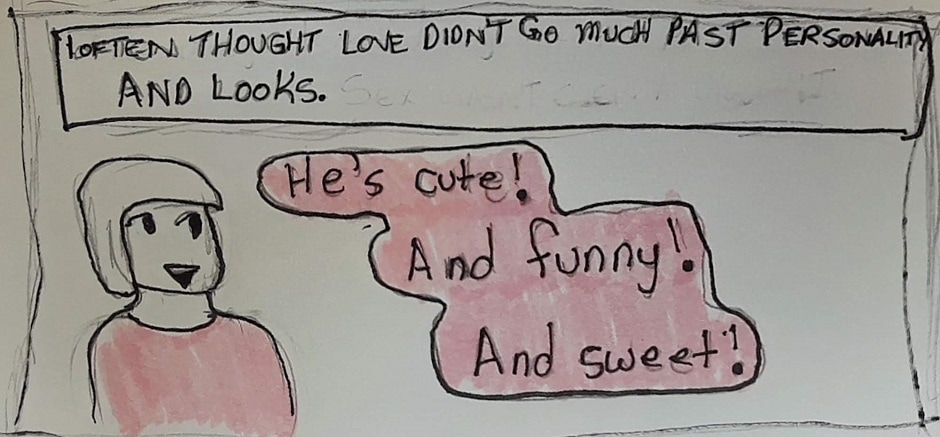 I OFTEN THOUGHT LOVE DIDN'T GO MUCH PAST PERSONALITY
AND LOOKS.
He's cute!
And funny!
And sweet!